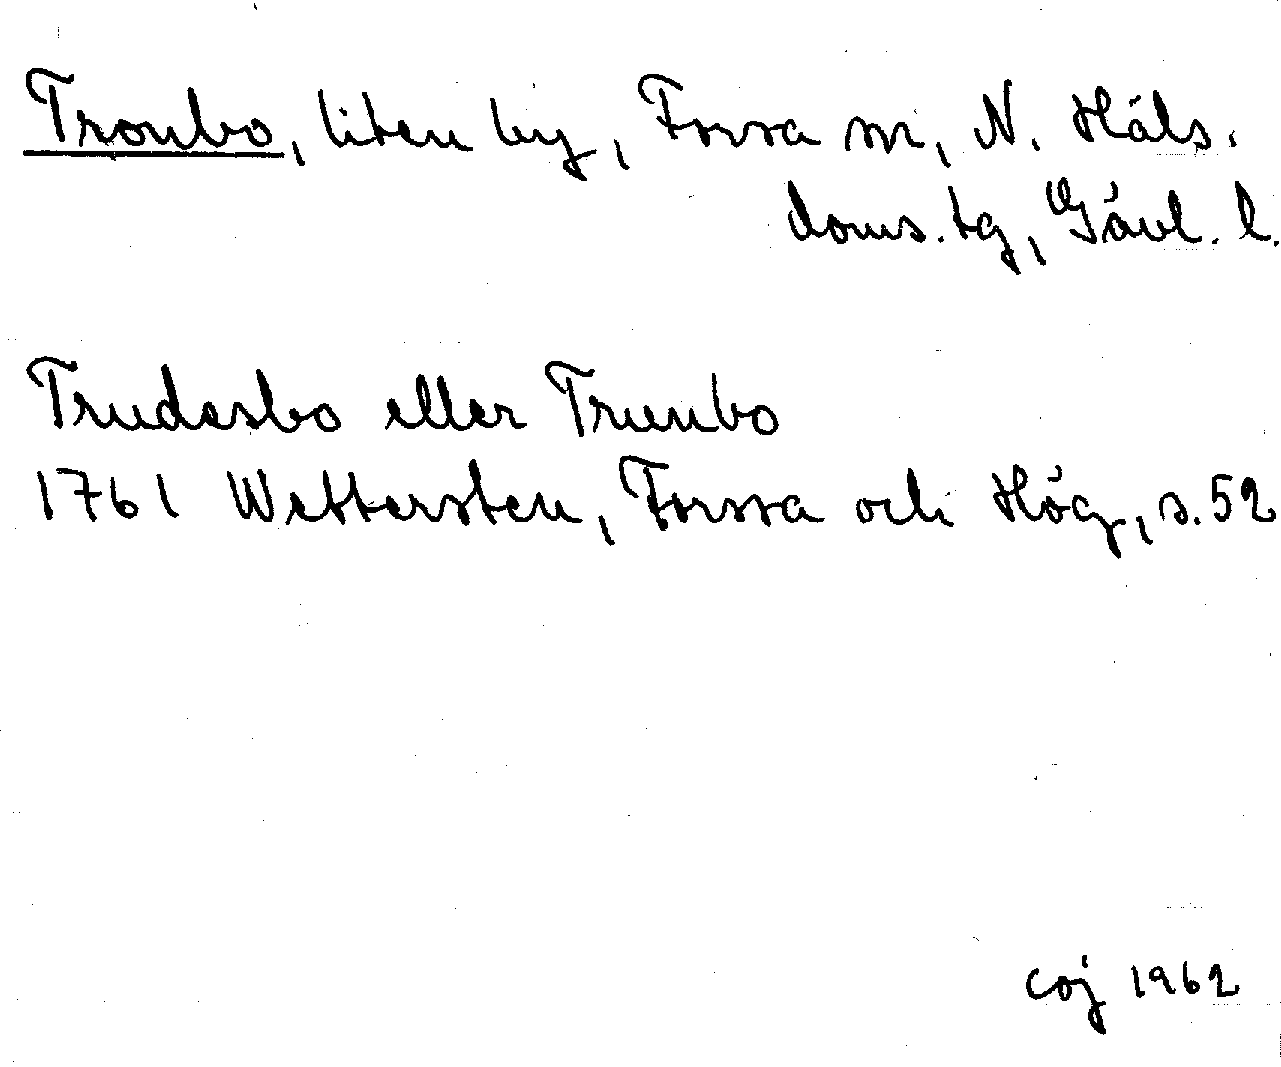 Tronbo, liten by, Forssa sn, N. Häls.
doms. tg, Gävl. l.
Trudesbo eller Trunbo
1761 Wettersten, Forssa och Hög, s. 52
coj 1962